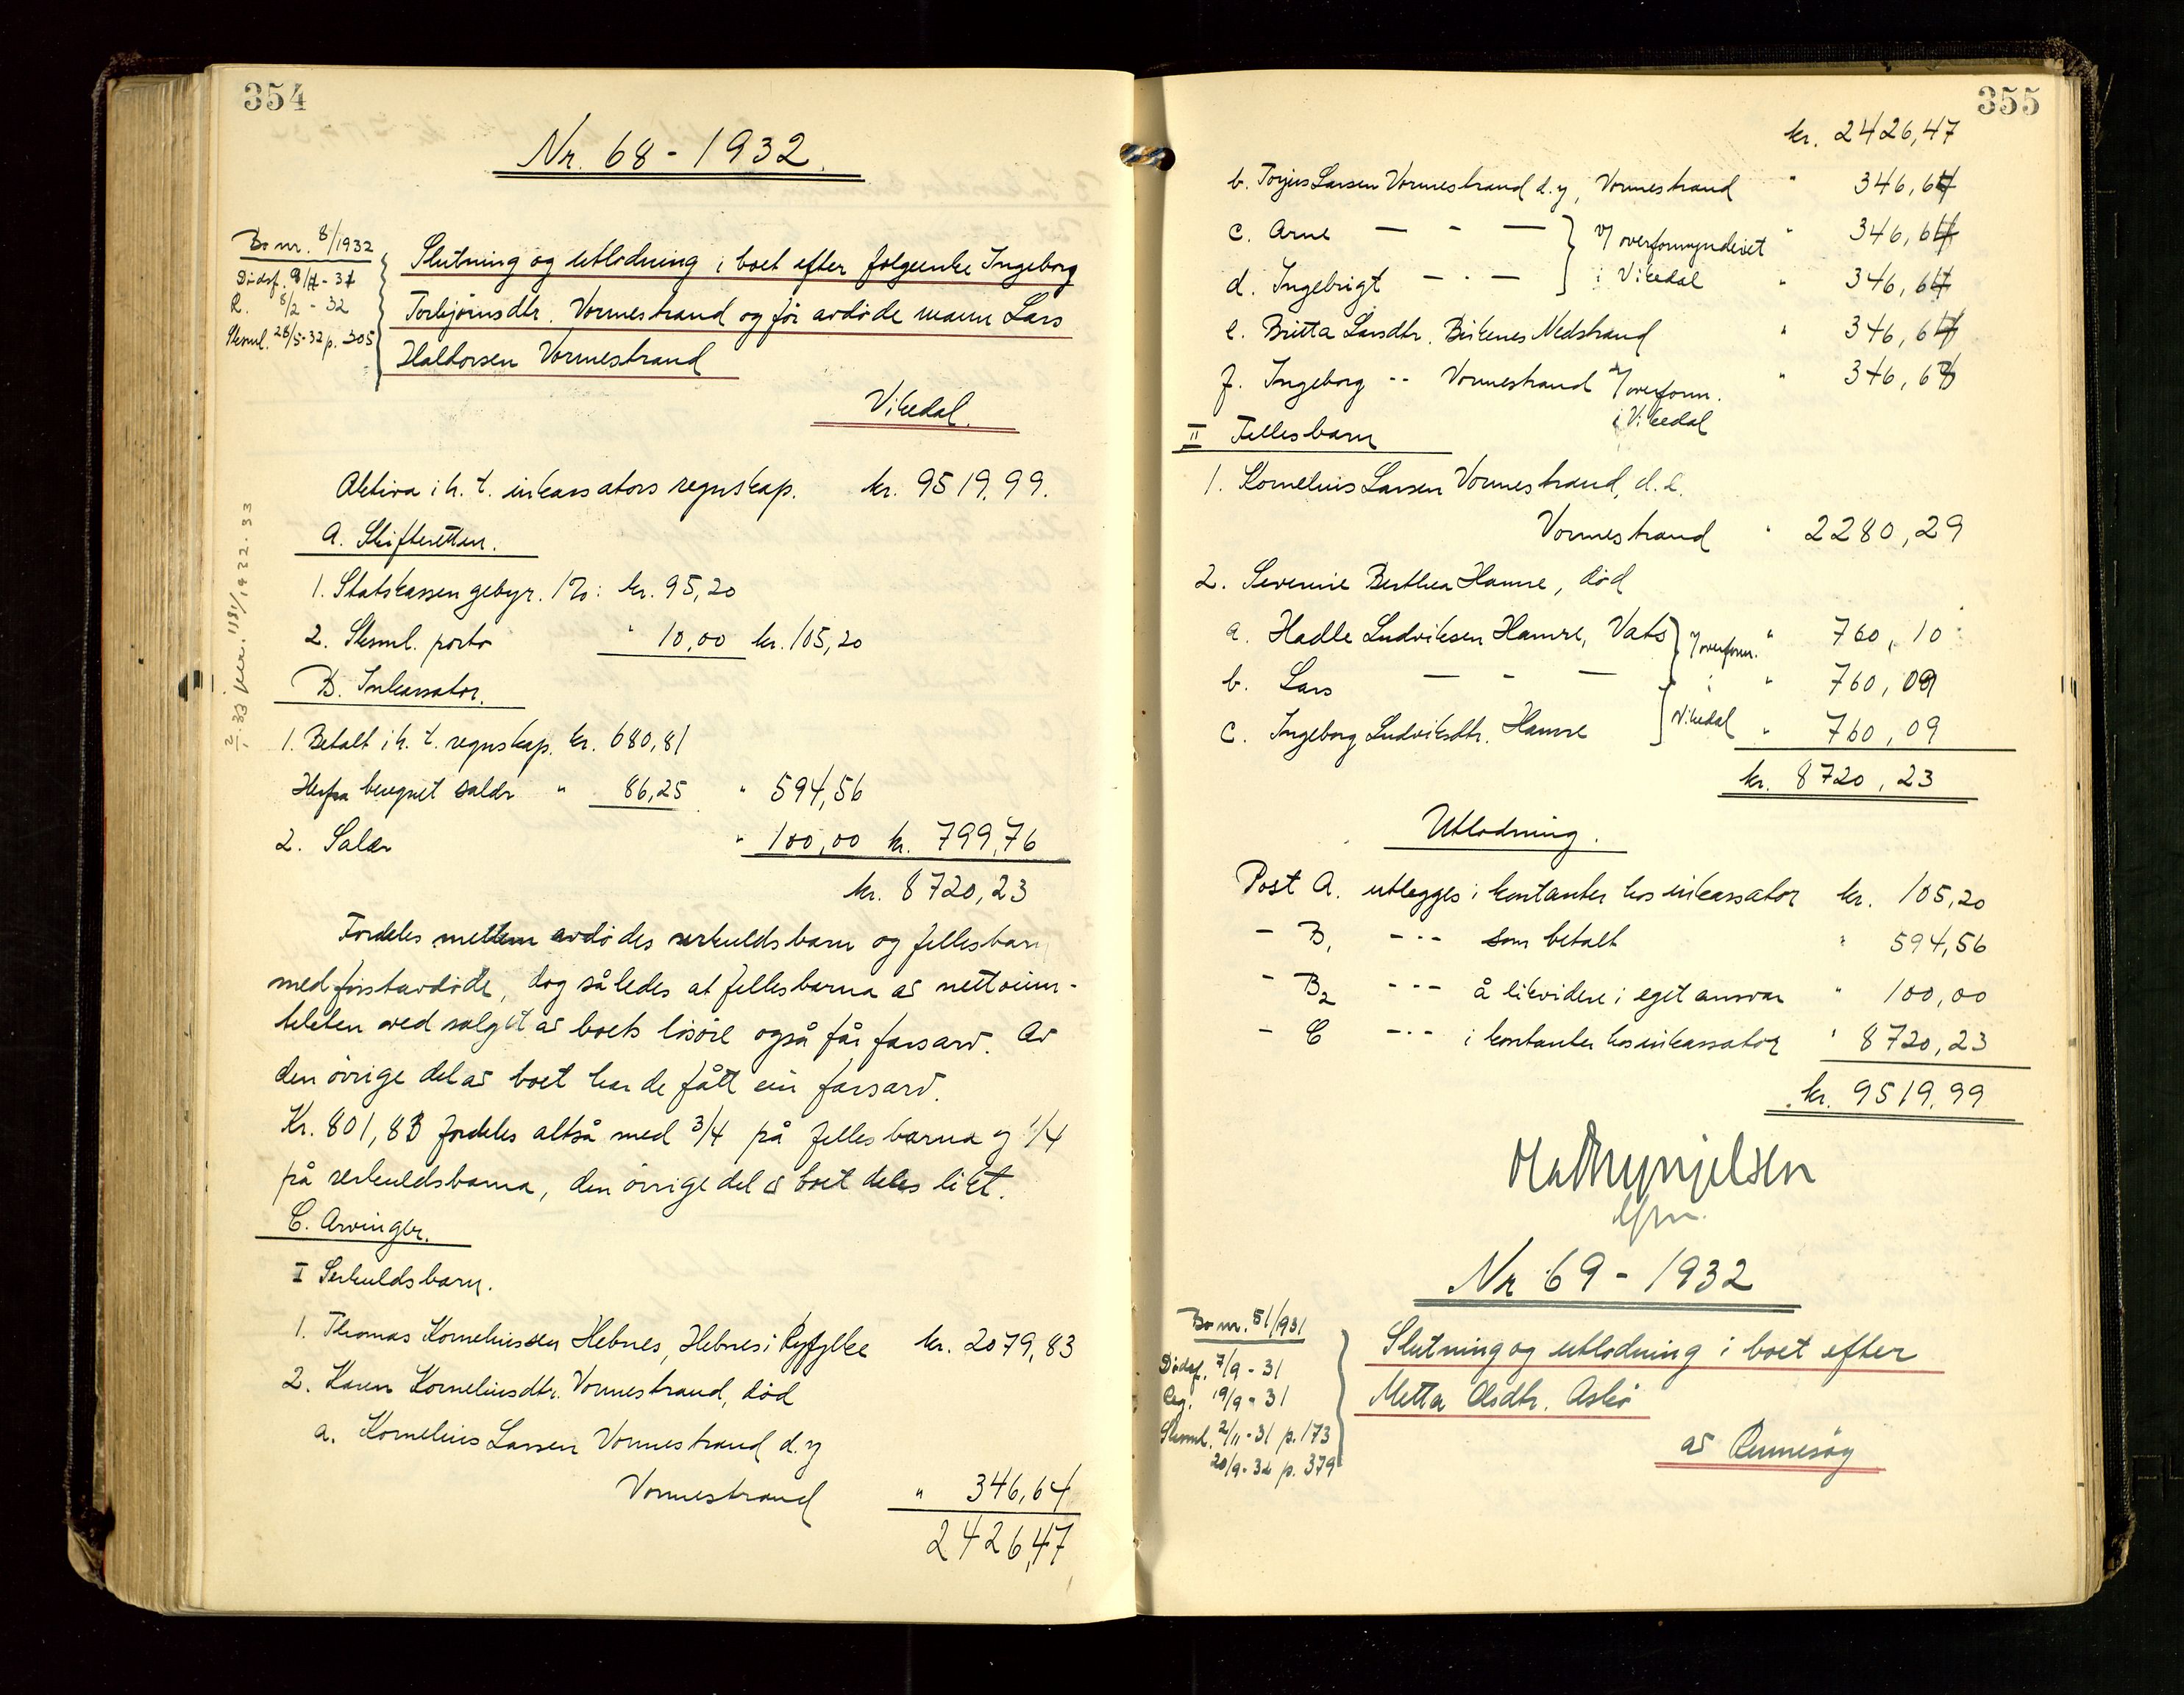 354
Nr. 68 - 1932.
Bo nr. 8/1932
Dødsf. 9/4 - 31
R. 8/2 - 32
Skrml. 28/5-32 p. 305
Slutning og utlodning i boet efter følgeenke Ingeborg
Torbjørnsdtr. Vormestrand og før avdøde mann Lars
Haldorsen Vormestrand
Vikedal.
Aktiva i h. t. inkassators regnskap. kr. 9519,99.
A. Skifteretten.
1. Statskassen gebyr. 1%: kr. 95,20
2. Skrml. porto " 10,00 kr. 105,20
B. Inkassator.
1. Betalt i h. t. regnskap. kr. 680,81
Herfra beregnet salær " 86,25 " 594,56
2. Salær " 100,00 kr. 799,76
kr. 8720,23
Fordeles mellem avdødes særkuldsbarn og fellesbarn
med førstavdøde, dog således at fellesbarna av nettoinn-
tekten ved salget av boets løsøre også får farsarv. Av
den øvrige del av boet har de fått sin farsarv.
Kr. 801,83 fordeles altså med 3/4 på fellesbarna og 1/4
på særkuldsbarna, den øvrige del av boet deles likt.
C. Arvinger.
I Særkuldsbarn.
1. Thomas Korneliussen Hebnes, Hebnes i Ryfylke kr. 2079,83
2. Karen Korneliusdtr. Vormestrand, død
a. Kornelius Larsen Vormestrand d. y
Vormestrand " 346,64
2426,47
355
kr. 2426,47
b. Torjus Larsen Vormestrand d. y, Vormestrand " 346,64
c. Arne — - — } v/ overformynderiet " 346,64
d. Ingebrigt — - — } i Vikedal " 346,64
e. Britta Larsdtr. Birkenes Nedstrand " 346,64
f. Ingeborg -- Vormestrand v/ overform. " 346,6
i Vikedal
II Fellesbarn
1. Kornelius Larsen Vormestrand, d. e.
Vormestrand " 2280,29
2. Severine Berthea Hamre, død
a. Hadle Ludviksen Hamre, Vats } v/ overform. " 760,10
b. Lars — - — i " 760,09
c. Ingeborg Ludviksdtr. Hamre } Vikedal " 760,09
kr. 8720,23
Utlodning.
Post A. utlegges i kontanter hos inkassator kr. 105,20
- B, - - - som betalt " 594,56
- B2 - - - å likvidere i eget ansvar " 100,00
- C - - - i kontanter hos inkassator " 8720,23
kr. 9519,99
Nr 69 - 1932
Bo nr. 51/1931
Dødsf. 7/9 - 31
Reg. 19/9 - 31
Skrml. 2/11-31 p. 173
20/9-32 p. 379
Slutning og utlodning i boet efter
Metta Olsdtr. Askø
av Rennesøy